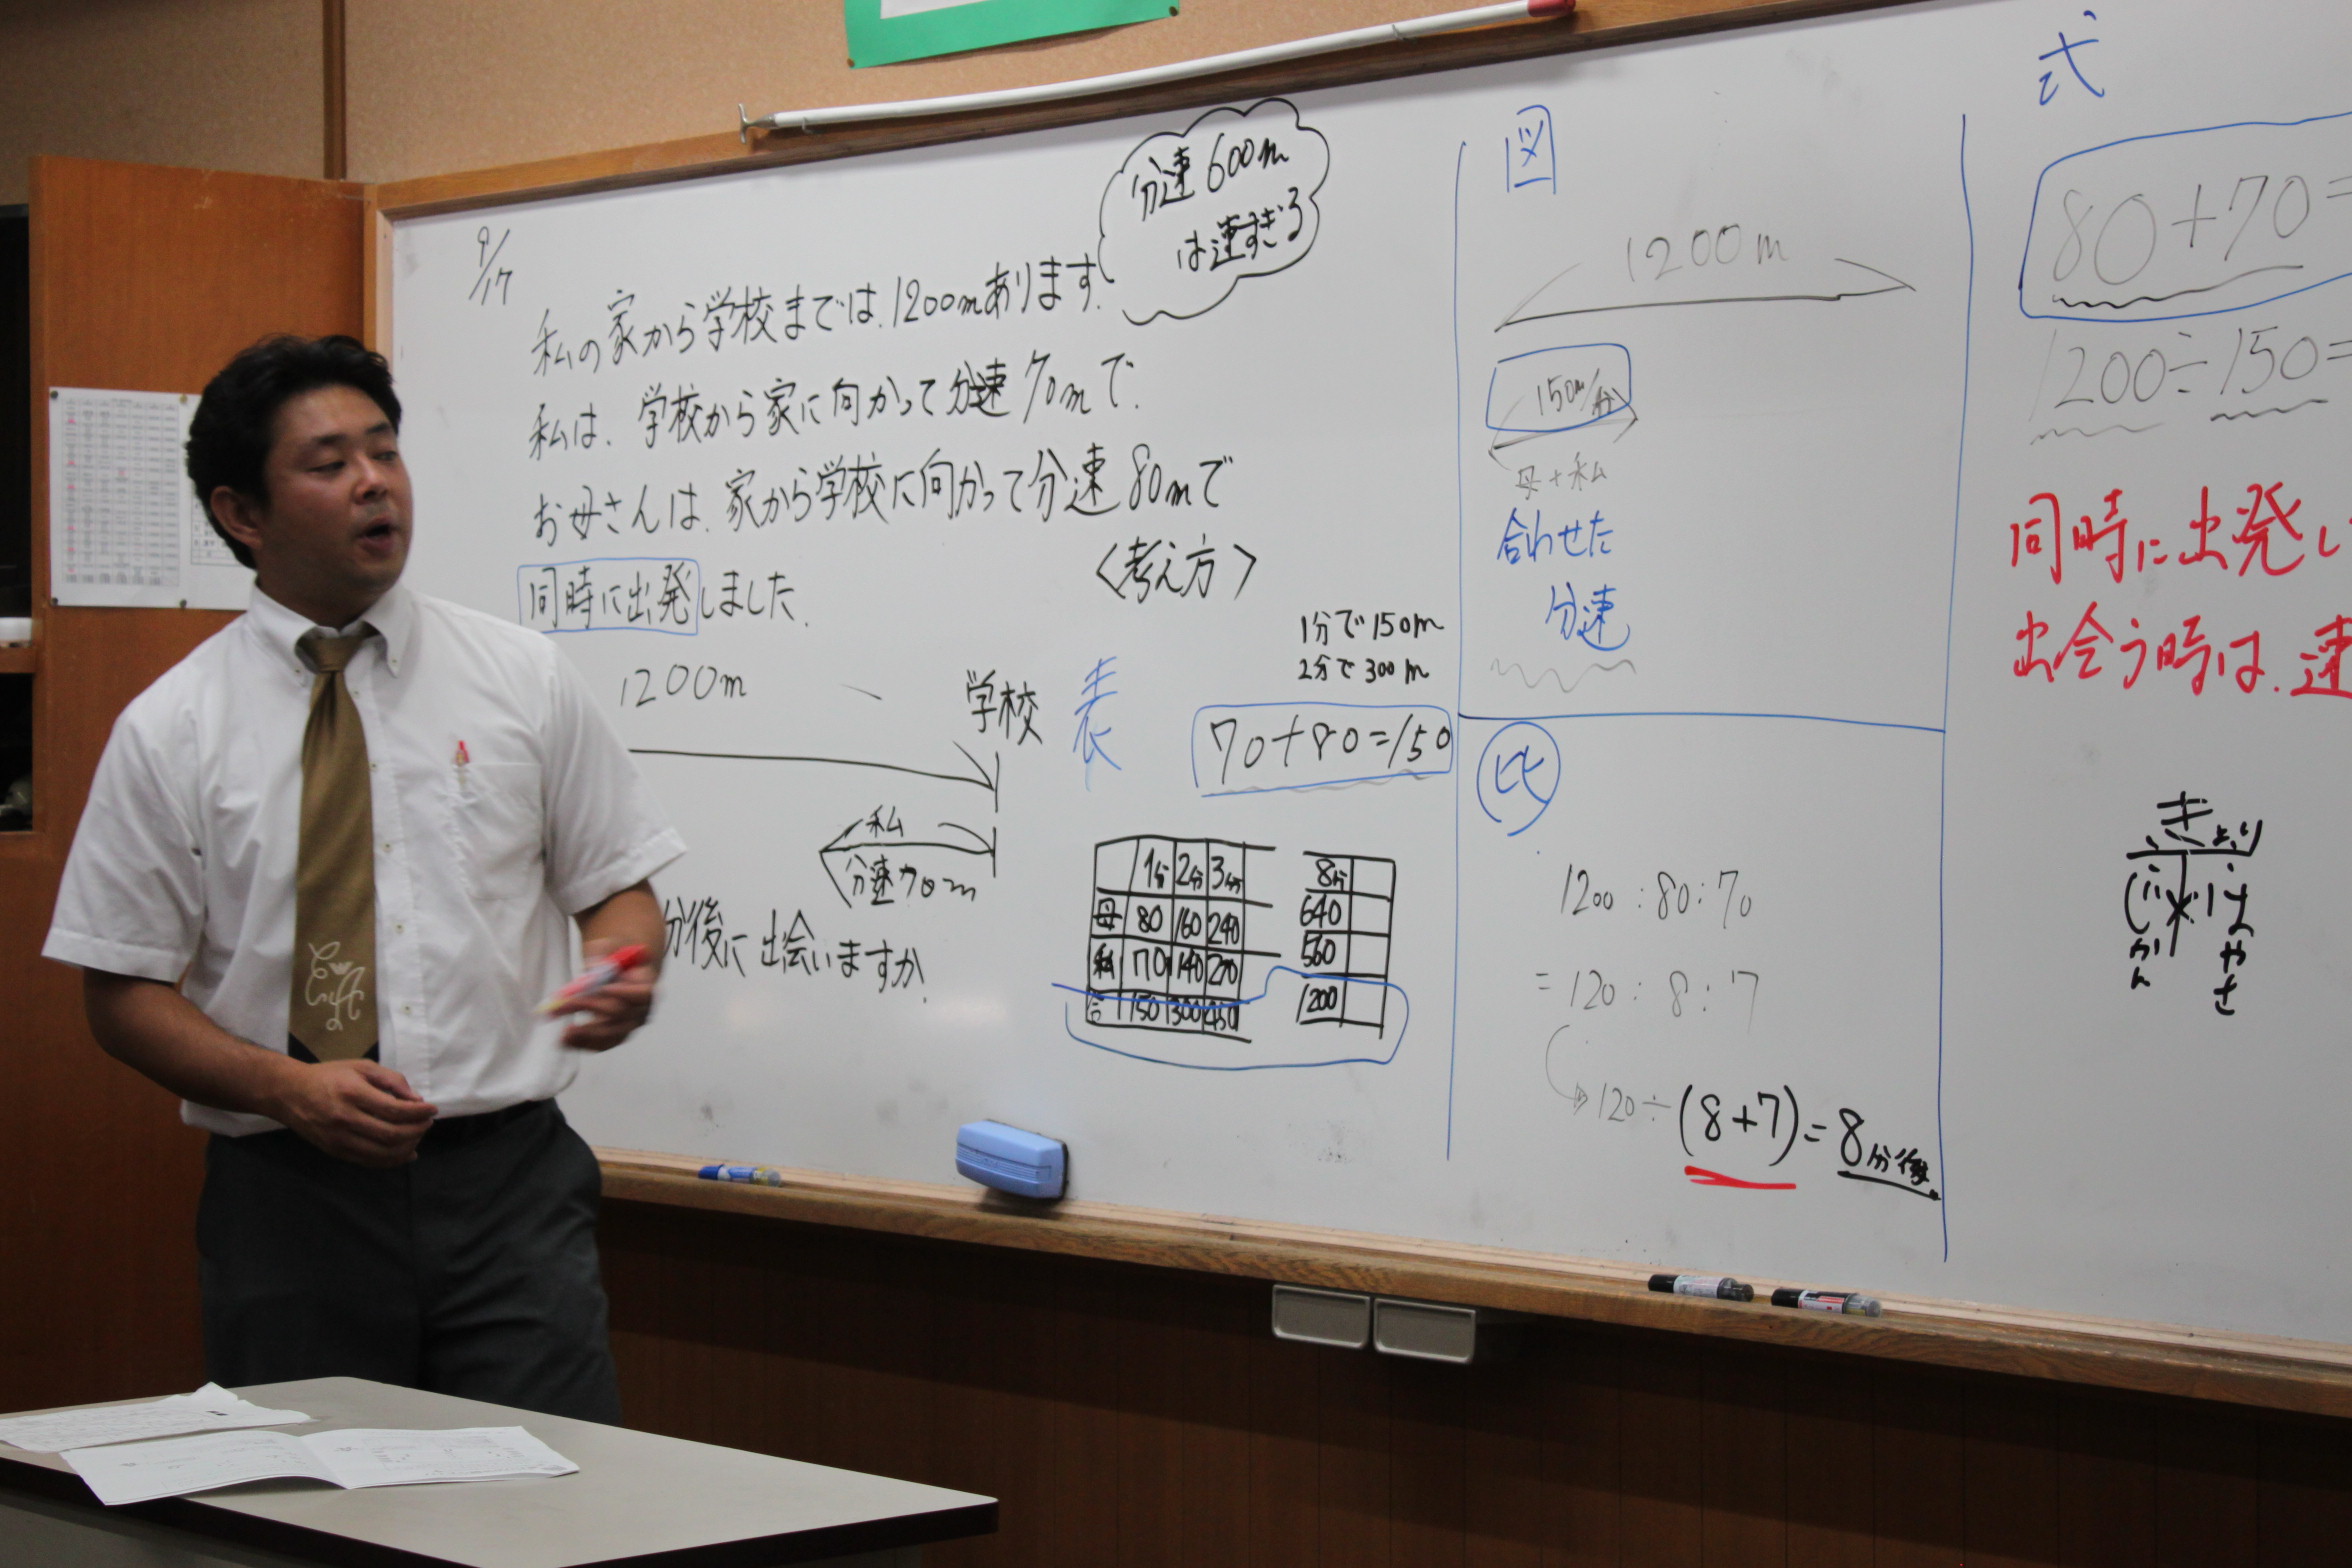 9/17
分速600m
は速すぎる
私の家から学校までは、1200mあります。
私は、学校から家に向かって分速70mで、
お母さんは、家から学校に向かって分速80mで
同時に出発しました。
1200m
学校
私
分速70m
分後に出会いますか。
<考え方>
1分で150m
2分で300m
表
70+80=150
1分 2分 3分 8分
母 80 160 240 640
私 70 140 210 560
合 150 300 450 1200
図
1200m
150m/分
母+私
合わせた
分速
比
1200:80:70
=120:8:7
120÷(8+7)=8分後
式
80+70=
1200÷150=
同時に出発し
出会う時は、速
きょり
じかん
はやさ